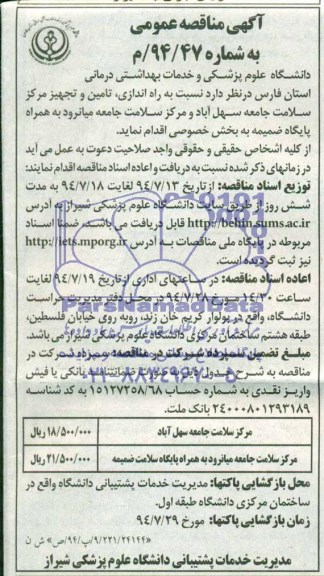 آگهی مناقصه عمومی
به شماره ۹۴/۴۷/م
دانشگاه علوم پزشکی و خدمات بهداشتی درمانی
استان فارس درنظر دارد نسبت به راه اندازی، تامین و تجهیز مرکز
سلامت جامعه سهل آباد و مرکز سلامت جامعه میانرود به همراه
پایگاه ضمیمه به بخش خصوصی اقدام نماید.
از کلیه اشخاص حقیقی و حقوقی واجد صلاحیت دعوت به عمل می آید
در زمانهای ذکر شده نسبت به دریافت و اعاده اسناد مناقصه اقدام نمایند:
توزیع اسناد مناقصه: از تاریخ ۹۴/۷/۱۳ لغایت ۹۴/۷/۱۸ به مدت
شش روز از طریق سایت دانشگاه علوم پزشکی شیراز به آدرس
http://behin.sums.ac.ir قابل دریافت می باشد. ضمنا اسناد
مربوطه در پایگاه ملی مناقصات به آدرس http://iets.mporg.ir
نیز ثبت گردیده است.
اعاده اسناد مناقصه: در ساعتهای اداری از تاریخ ۹۴/۷/۱۹ لغایت
ساعت ۱۴/۳۰ مورخ ۹۴/۷/۲۸ در محل دفتر مدیریت حراست
دانشگاه، واقع در بولوار کریم خان زند، روبه روی خیابان فلسطین،
طبقه هشتم ساختمان مرکزی دانشگاه علوم پزشکی شیراز می باشد.
مبلغ تضمین سپرده شرکت در مناقصه: سپرده شرکت در
مناقصه به شرح جدول ذیل به صورت ضمانتنامه بانکی یا فیش
واریز نقدی به شماره حساب ۱۵۱۲۷۲۵۸/۶۸ به کد شناسه
۲۴۰۰۰۸۰۱۲۹۳۱۸۹ بانک ملت.
مرکز سلامت جامعه سهل آباد ۱۸/۵۰۰/۰۰۰ ریال
مرکز سلامت جامعه میانرود به همراه پایگاه سلامت ضمیمه ۲۱/۵۰۰/۰۰۰ ریال
محل بازگشایی پاکتها: مدیریت خدمات پشتیبانی دانشگاه واقع در
ساختمان مرکزی دانشگاه طبقه اول.
زمان بازگشایی پاکتها: مورخ ۹۴/۷/۲۹
۹/۲۲۱/۲۴۱۴۴/پ/۹۴/ص» ش ن
مدیریت خدمات پشتیبانی دانشگاه علوم پزشکی شیراز
ParsNamadData
۰۲۱-۸۸۳۴۹۶۷۰-۵